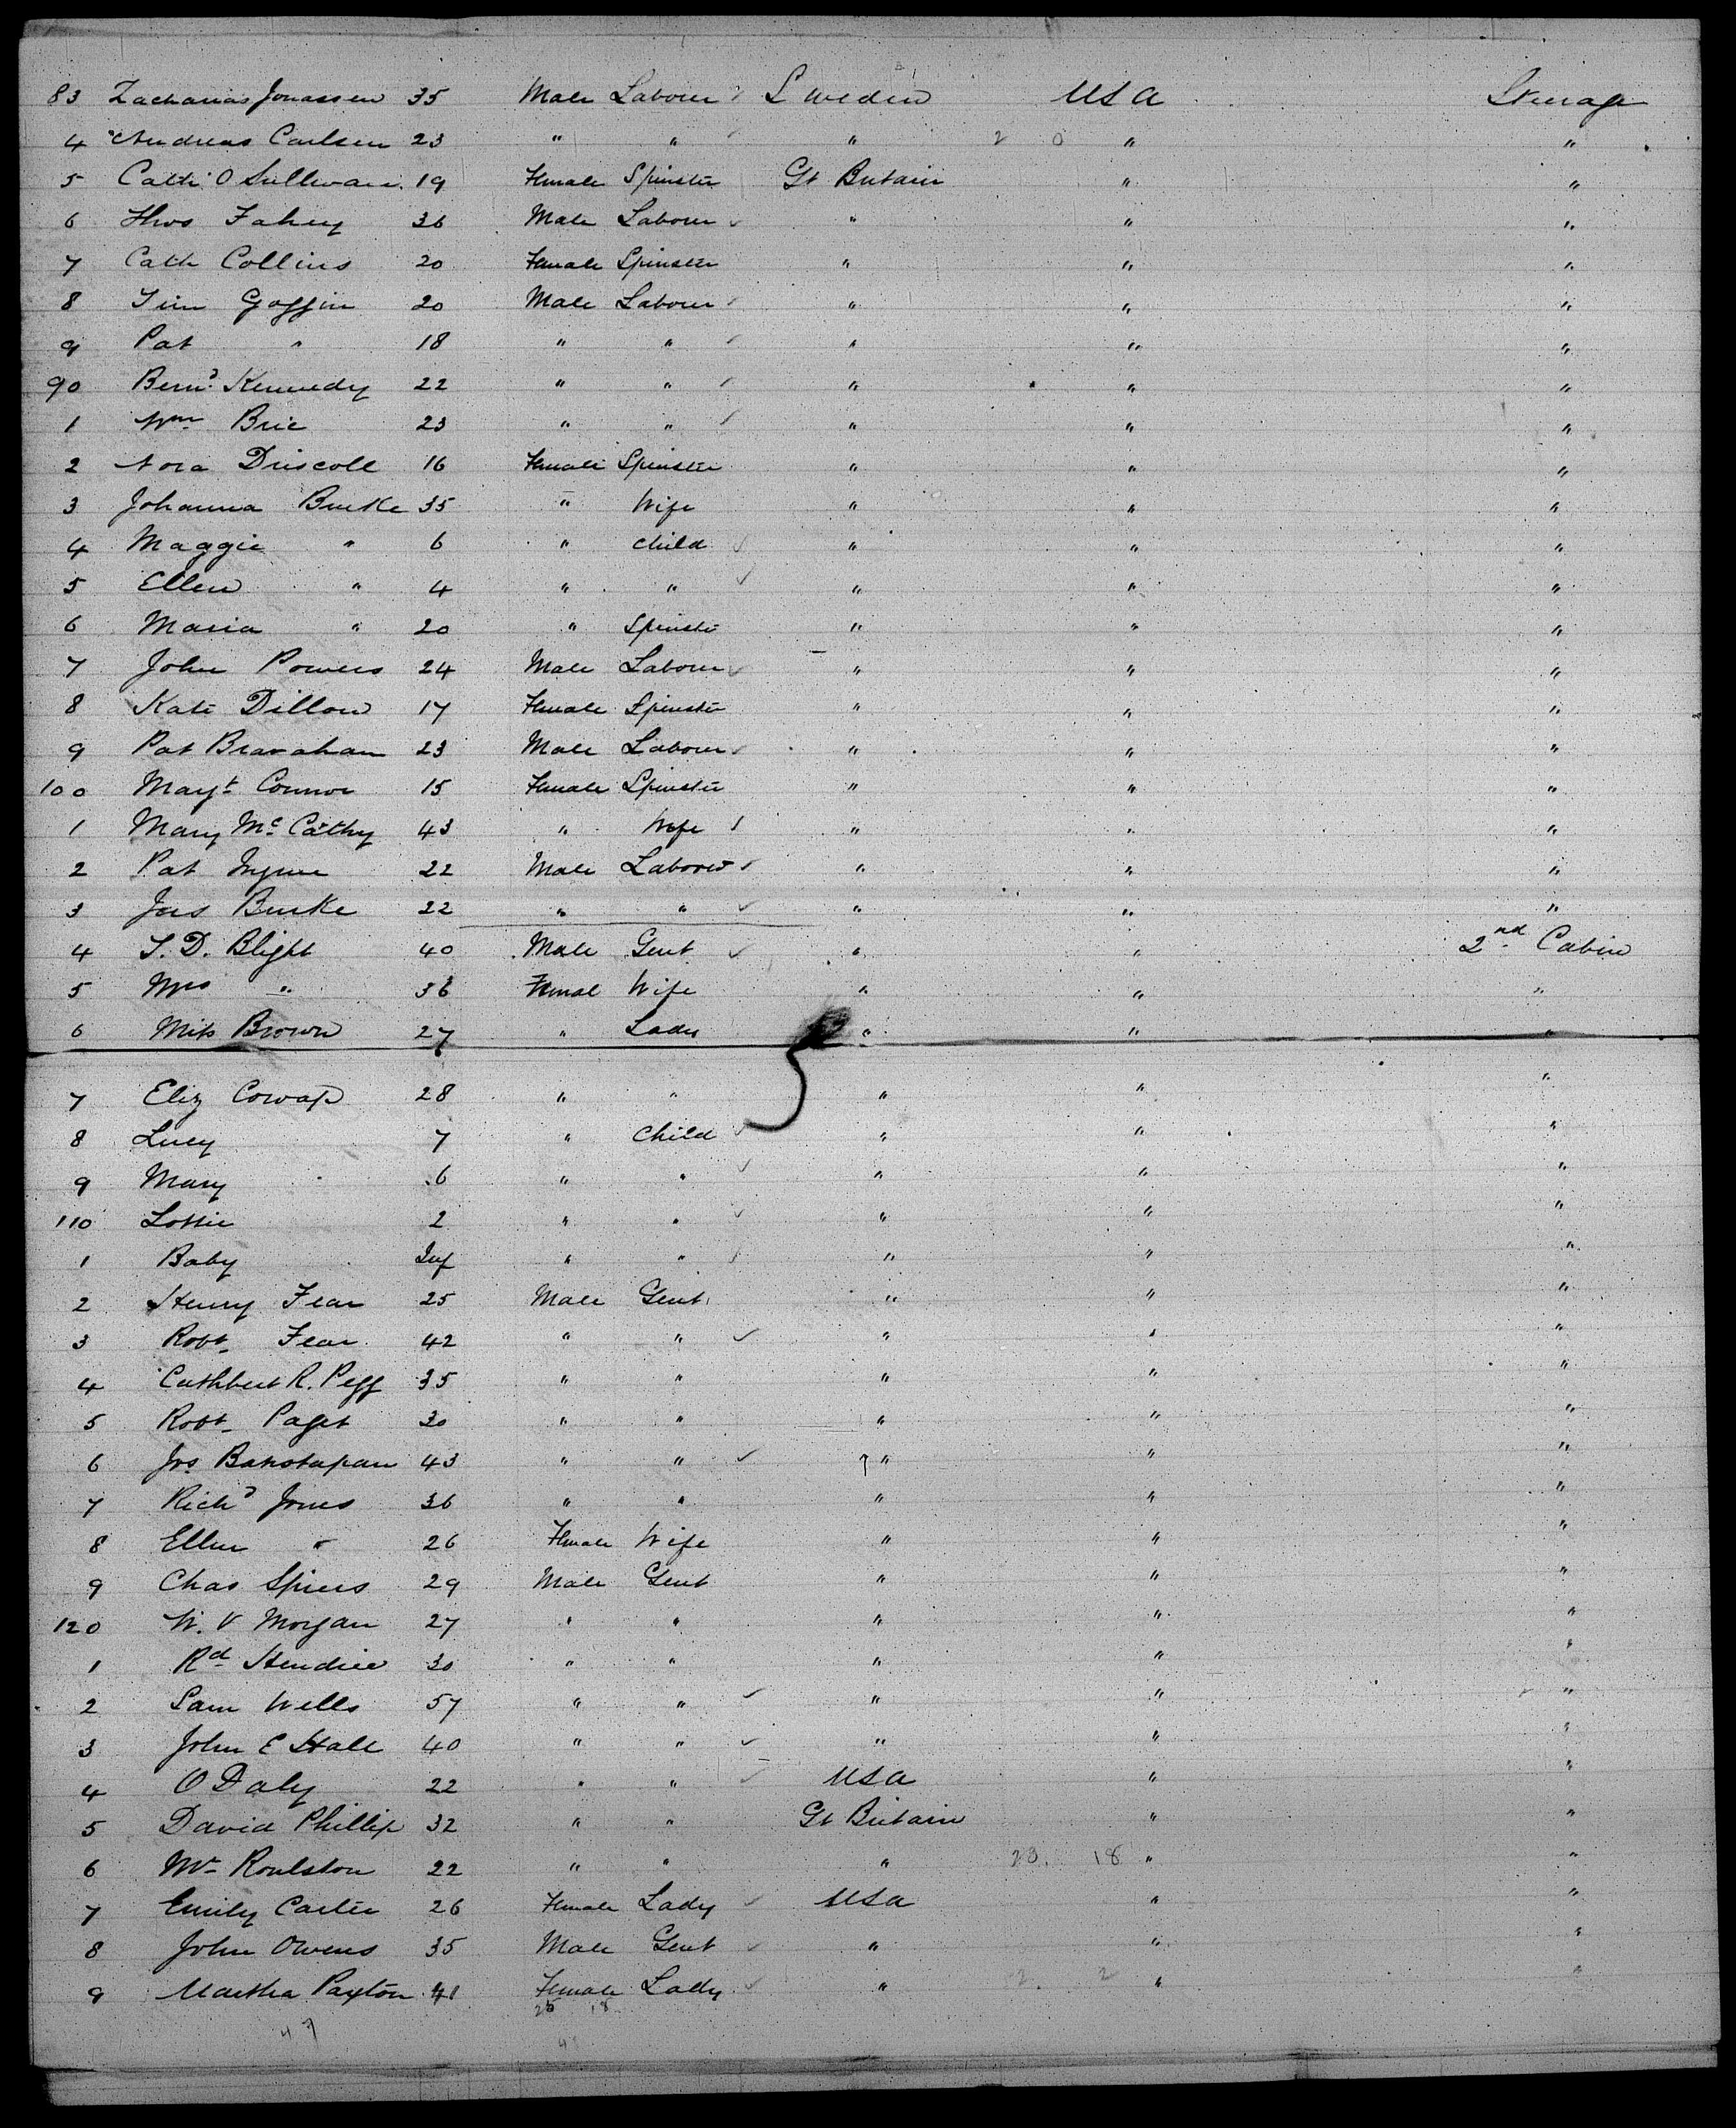 83 Zacharias Jonassen 35 Male Labourer Sweden USA Steerage
4 Andreas Carlsen 23 " " " 2 0 " "
5 Cath O Sullivan 19 Female Spinster Gt Britain " "
6 Thos Fahey 36 Male Labourer " " "
7 Cath Collins 20 Female Spinster " " "
8 Tim Goggin 20 Male Labourer " " "
9 Pat " 18 " " " " "
90 Bernd Kennedy 22 " " " " "
1 Wm Brie 23 " " " " "
2 Nora Driscoll 16 Female Spinster " " "
3 Johanna Burke 35 " Wife " " "
4 Maggie " 6 " Child " " "
5 Ellen " 4 " " " " "
6 Maria " 20 " Spinstr " " "
7 John Powers 24 Male Labourer " " "
8 Kate Dillon 17 Female Spinster " " "
9 Pat Branahan 23 Male Labourer " " "
100 Margt Connor 15 Female Spinster " " "
1 Mary Mc Cathy 43 " Wife " " "
2 Pat 22 Male Laborer " " "
3 Jas Burke 22 " " " " "
4 T. D. Blight 40 Male Gent " " 2nd Cabin
5 Mrs " 36 Femal Wife " " "
6 Miss Brown 27 " Lady " " "
7 Eliz Cowap 28 " " " " "
8 Lucy 7 " Child " " "
9 Mary 6 " " " " "
110 Lottie 2 " " " " "
1 Baby Inf " " " " "
2 Henry Fear 25 Male Gent " " "
3 Robt Fear 42 " " " " "
4 Cuthbert R. Pegg 35 " " " " "
5 Robt Paget 30 " " " " "
6 Jos 43 " " " " "
7 Richd Jones 36 " " " " "
8 Ellen " 26 Female Wife " " "
9 Chas Spiers 29 Male Gent " " "
120 W. V Morgan 27 " " " " "
1 Rd 30 " " " " "
2 Sam Wells 57 " " " " "
3 John E Hall 40 " " " " "
4 O Daly 22 " " USA " "
5 David Phillip 32 " " Gt Britain " "
6 Mr Roulston 22 " " " 23. 18 " "
7 Emily Carter 26 Female Lady USA " "
8 John Owens 35 Male Gent " " "
9 Martha Paxton 41 Female Lady " 2. 2 " "
25 18
47